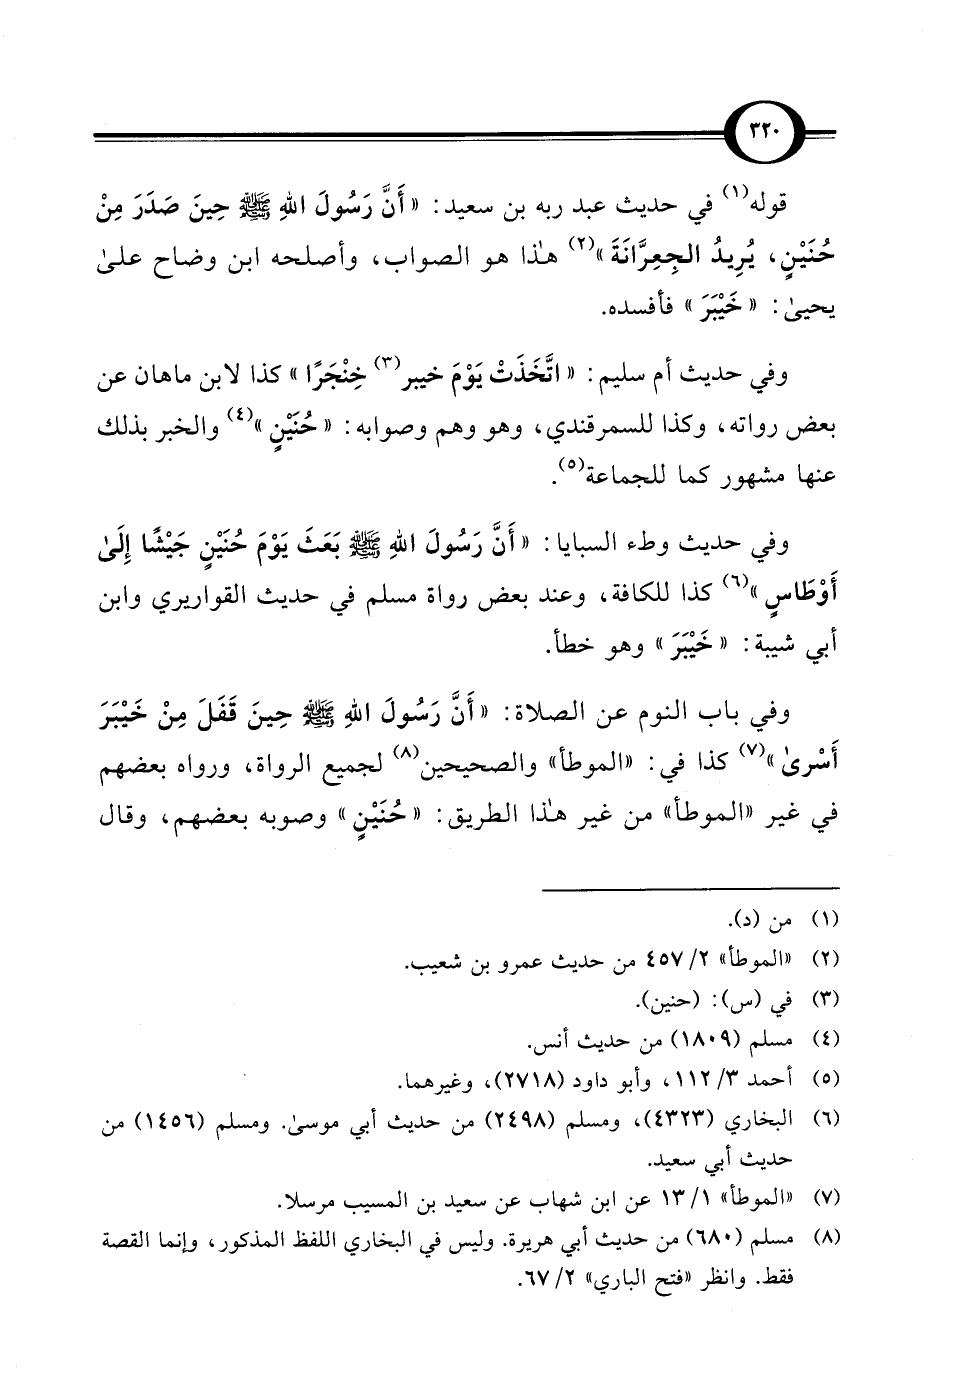 ٣٢٠
قوله(١) في حديث عبد ربه بن سعيد: «أَنَّ رَسُولَ اللهِ ﷺ حِينَ صَدَرَ مِنْ
حُنَيْنٍ، يُرِيدُ الجِعِرَّانَةَ»(٢) هٰذا هو الصواب، وأصلحه ابن وضاح علىٰ
يحيىٰ: «خَيْبَرَ» فأفسده.
وفي حديث أم سليم: «اتَّخَذَتْ يَوْمَ خيبر(٣) خِنْجَرًا» كذا لابن ماهان عن
بعض رواته، وكذا للسمرقندي، وهو وهم وصوابه: «حُنَيْنٍ»(٤) والخبر بذلك
عنها مشهور كما للجماعة(٥).
وفي حديث وطء السبايا: «أَنَّ رَسُولَ اللهِ ﷺ بَعَثَ يَوْمَ حُنَيْنٍ جَيْشًا إِلَىٰ
أَوْطَاسٍ»(٦) كذا للكافة، وعند بعض رواة مسلم في حديث القواريري وابن
أبي شيبة: «خَيْبَرَ» وهو خطأ.
وفي باب النوم عن الصلاة: «أَنَّ رَسُولَ اللهِ ﷺ حِينَ قَفَلَ مِنْ خَيْبَرَ
أَسْرىٰ»(٧) كذا في: «الموطأ» والصحيحين(٨) لجميع الرواة، ورواه بعضهم
في غير «الموطأ» من غير هٰذا الطريق: «حُنَيْنٍ» وصوبه بعضهم، وقال
(١) من (د).
(٢) «الموطأ» ٢/ ٤٥٧ من حديث عمرو بن شعيب.
(٣) في (س): (حنين).
(٤) مسلم (١٨٠٩) من حديث أنس.
(٥) أحمد ٣/ ١١٢، وأبو داود (٢٧١٨)، وغيرهما.
(٦) البخاري (٤٣٢٣)، ومسلم (٢٤٩٨) من حديث أبي موسىٰ. ومسلم (١٤٥٦) من
حديث أبي سعيد.
(٧) «الموطأ» ١/ ١٣ عن ابن شهاب عن سعيد بن المسيب مرسلا.
(٨) مسلم (٦٨٠) من حديث أبي هريرة. وليس في البخاري اللفظ المذكور، وإنما القصة
فقط. وانظر «فتح الباري» ٢/ ٦٧.